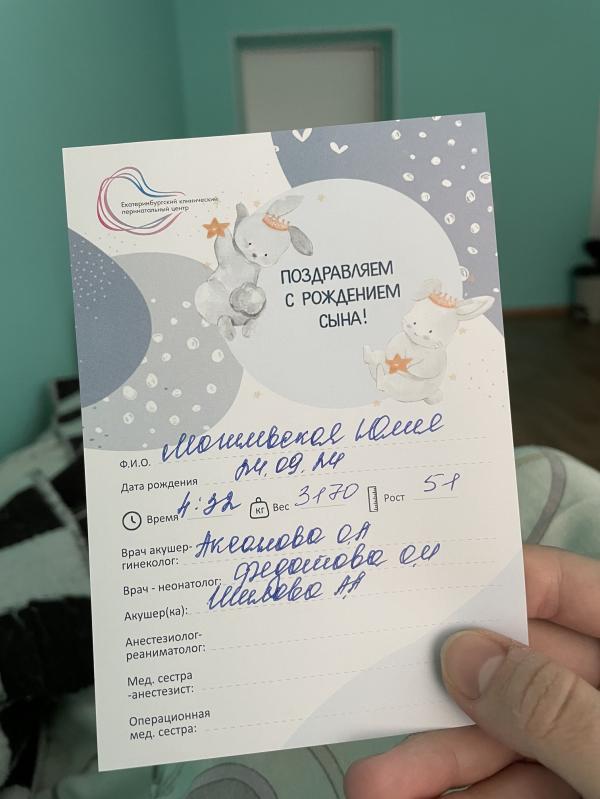 Екатеринбургский клинический
перинатальный центр
ПОЗДРАВЛЯЕМ
С РОЖДЕНИЕМ
СЫНА!
Ф.И.О. Могилевская Юлия
Дата рождения 24.09.24
Время 4:32 кг Вес 3170 Рост 51
Врач акушер-
гинеколог: Аксанова О.А
Врач - неонатолог: Федотова О.И
Акушер(ка): Шилова А.А
Анестезиолог-
реаниматолог:
Мед. сестра
-анестезист:
Операционная
мед. сестра: